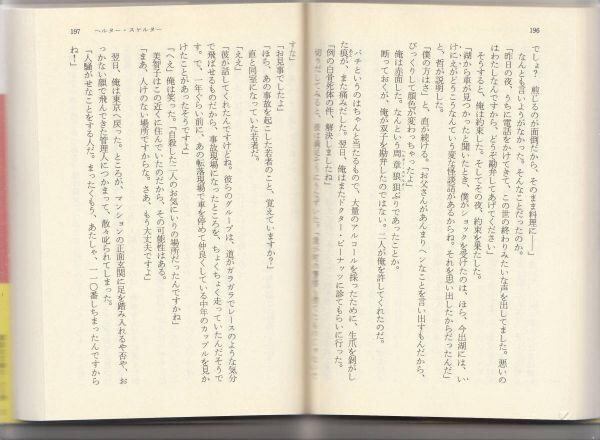 196
でしょ? 煎じるのが面倒だから、そのまま料理に――」
なんとも言いようがなかった。そんなことだったのか。
「昨日の夜、うちに電話をかけてきて、この世の終わりみたいな声を出してました。悪いの
はわたしなんですから、どうぞ勘弁してあげてください」
そうすると、俺は約束した。そしてその夜、約束を果たした。
「湖から車が見つかったと聞いたとき、僕がショックを受けたのは、ほら、今出湖には、い
けにえがどうこうなんていう変な怪談話があるからね。それを思い出したからだったんだ」
と、哲が説明した。
「僕の方はさ」と、直が続ける。「お父さんがあんまりヘンなことを言い出すもんだから、
びっくりして顔色が変わっちゃったよ」
俺は赤面した。なんという周章狼狽ぶりであったことか。
断っておくが、俺が双子を勘弁したのではない。二人が俺を許してくれたのだ。
バチというのはちゃんと当たるもので、大量のアルコールを採ったために、生爪を剝がし
た痕が、また痛みだした。翌日、俺はまたドクター・ピーナッツに診てもらいに行った。
「例の白骨死体の件、解決しましたね」
197
ヘルター・スケルター
すな」
「お見事でしたよ」
「ほら、あの事故を起こした若者のこと、覚えていますか?」
直と同室になっていた若者だ。
「ええ」
「彼が話してくれたんですけどね。彼らのグループは、道がガラガラでレースのような気分
で飛ばせるものだから、事故現場になったところを、ちょくちょく走っていたんだそうで
す。で、一年くらい前に、あの転落現場で車を停めて仲良くしている中年のカップルを見か
けたことがあったそうですよ」
「へえ」俺は笑った。「自殺した二人のお気にいりの場所だったんですかね」
美智子はこの近くに住んでいたのだから、その可能性はある。
「まあ、人けのない場所ですからな。さあ、もう大丈夫ですよ」
翌日、俺は東京へ戻った。ところが、マンションの正面玄関に足を踏み入れるや否や、お
っかない顔で飛んできた管理人につかまって、散々に叱られてしまった。
「人騒がせなことをする人だ。まったくもう、あたしゃ、一一〇番しちまったんですから
ね!」